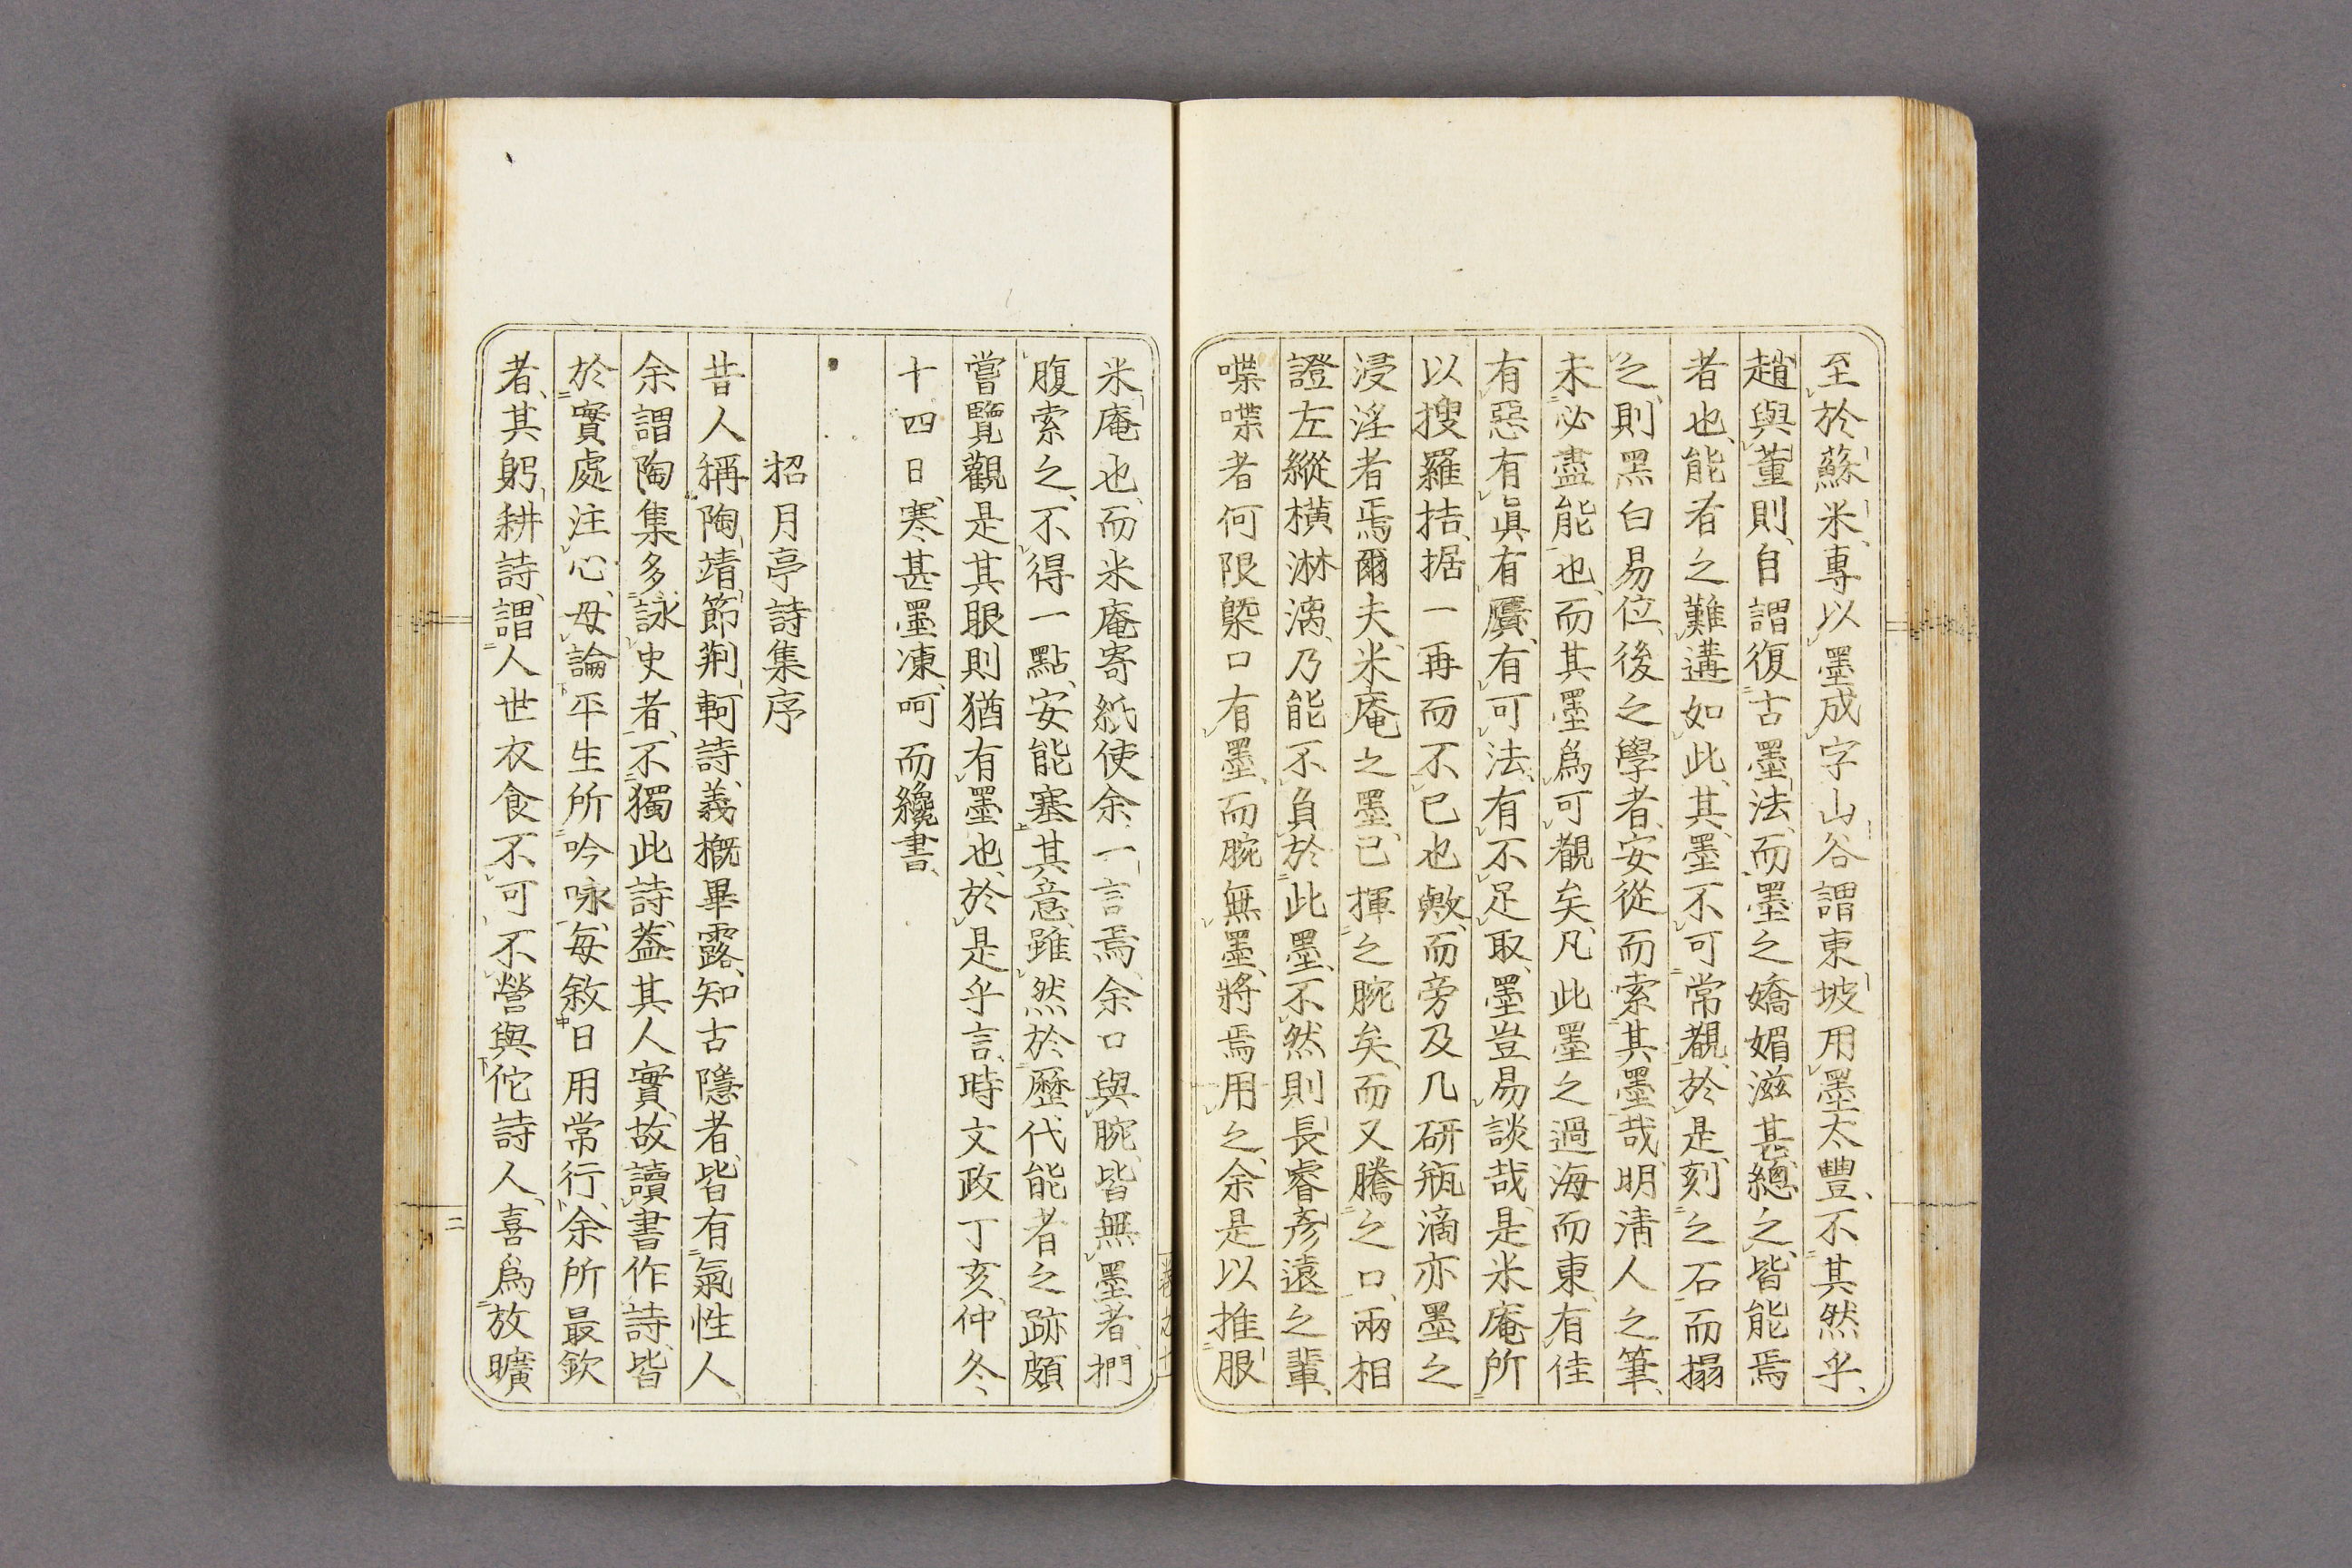 至於蘇米、專以墨成字山谷謂東坡用墨太豐、不其然乎、
趙與董則、自謂復古墨法、而墨之嬌媚滋甚、總之、皆能焉
者也、能者之難遘如此、其墨不可常覩、於是、刻之石而搨
之、則黑白易位、後之學者、安從而索其墨哉、明清人之筆、
未必盡能也、而其墨爲可覩矣、凡此墨之過海而東、有佳
有惡有眞有贋、有可法、有不足取、墨豈易談哉、是米庵所
以搜羅拮据一再而不已也歟、而旁及几研瓶滴亦墨之
浸淫者焉爾夫、米庵之墨、已揮之腕矣、而又騰之口、兩相
證左縱橫淋漓、乃能不負於此墨、不然則長睿彥遠之輩、
喋喋者何限槩口有墨、而腕無墨、將焉用之、余是以推服
米庵也、而米庵寄紙使余一言焉、余口與腕、皆無墨者、捫
腹索之、不得一點、安能塞其意、雖然於歷代能者之跡頗
嘗覽觀是其眼則猶有墨也、於是乎言、時文政丁亥、仲冬、
十四日、寒甚墨凍、呵而纔書、
招月亭詩集序
昔人稱陶靖節荆軻詩、義概畢露、知古隱者、皆有氣性人、
余謂陶集多詠史者、不獨此詩、葢其人實、故讀書作詩、皆
於實處注心、毋論平生所吟咏、每敘日用常行、余所最欽
者、其躬耕詩、謂人世衣食不可不營與佗詩人、喜爲放曠
二